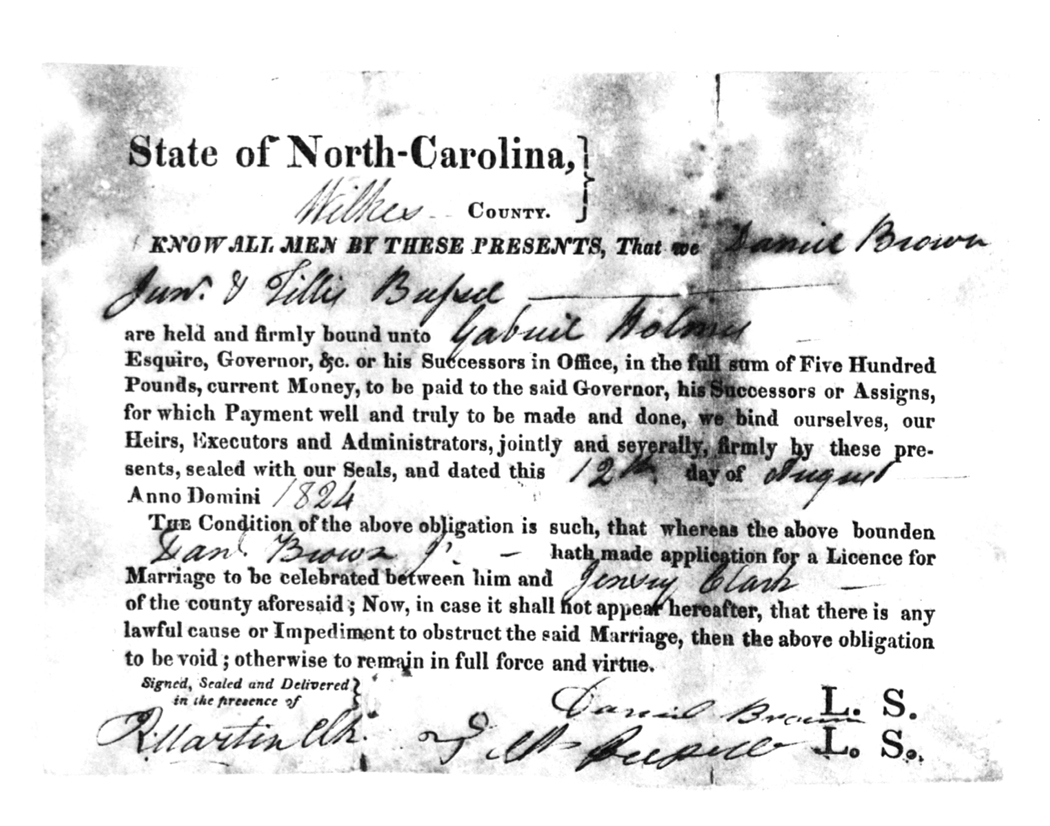 State of North-Carolina,
Wilkes COUNTY.
KNOW ALL MEN BY THESE PRESENTS, That we Daniel Brown
Junr. &
are held and firmly bound unto Gabriel Holmes
Esquire, Governor, &c. or his Successors in Office, in the full sum of Five Hundred
Pounds, current Money, to be paid to the said Governor, his Successors or Assigns,
for which Payment well and truly to be made and done, we bind ourselves, our
Heirs, Executors and Administrators, jointly and severally, firmly by these pre-
sents, sealed with our Seals, and dated this 12th. day of August
Anno Domini 1824
THE Condition of the above obligation is such, that whereas the above bounden
Danl. Brown Jr. - hath made application for a Licence for
Marriage to be celebrated between him and Clark
of the county aforesaid; Now, in case it shall not appear hereafter, that there is any
lawful cause or Impediment to obstruct the said Marriage, then the above obligation
to be void; otherwise to remain in full force and virtue.
Signed, Sealed and Delivered
in the presence of
Daniel Brown L. S.
R. Martin Clk. L. S.